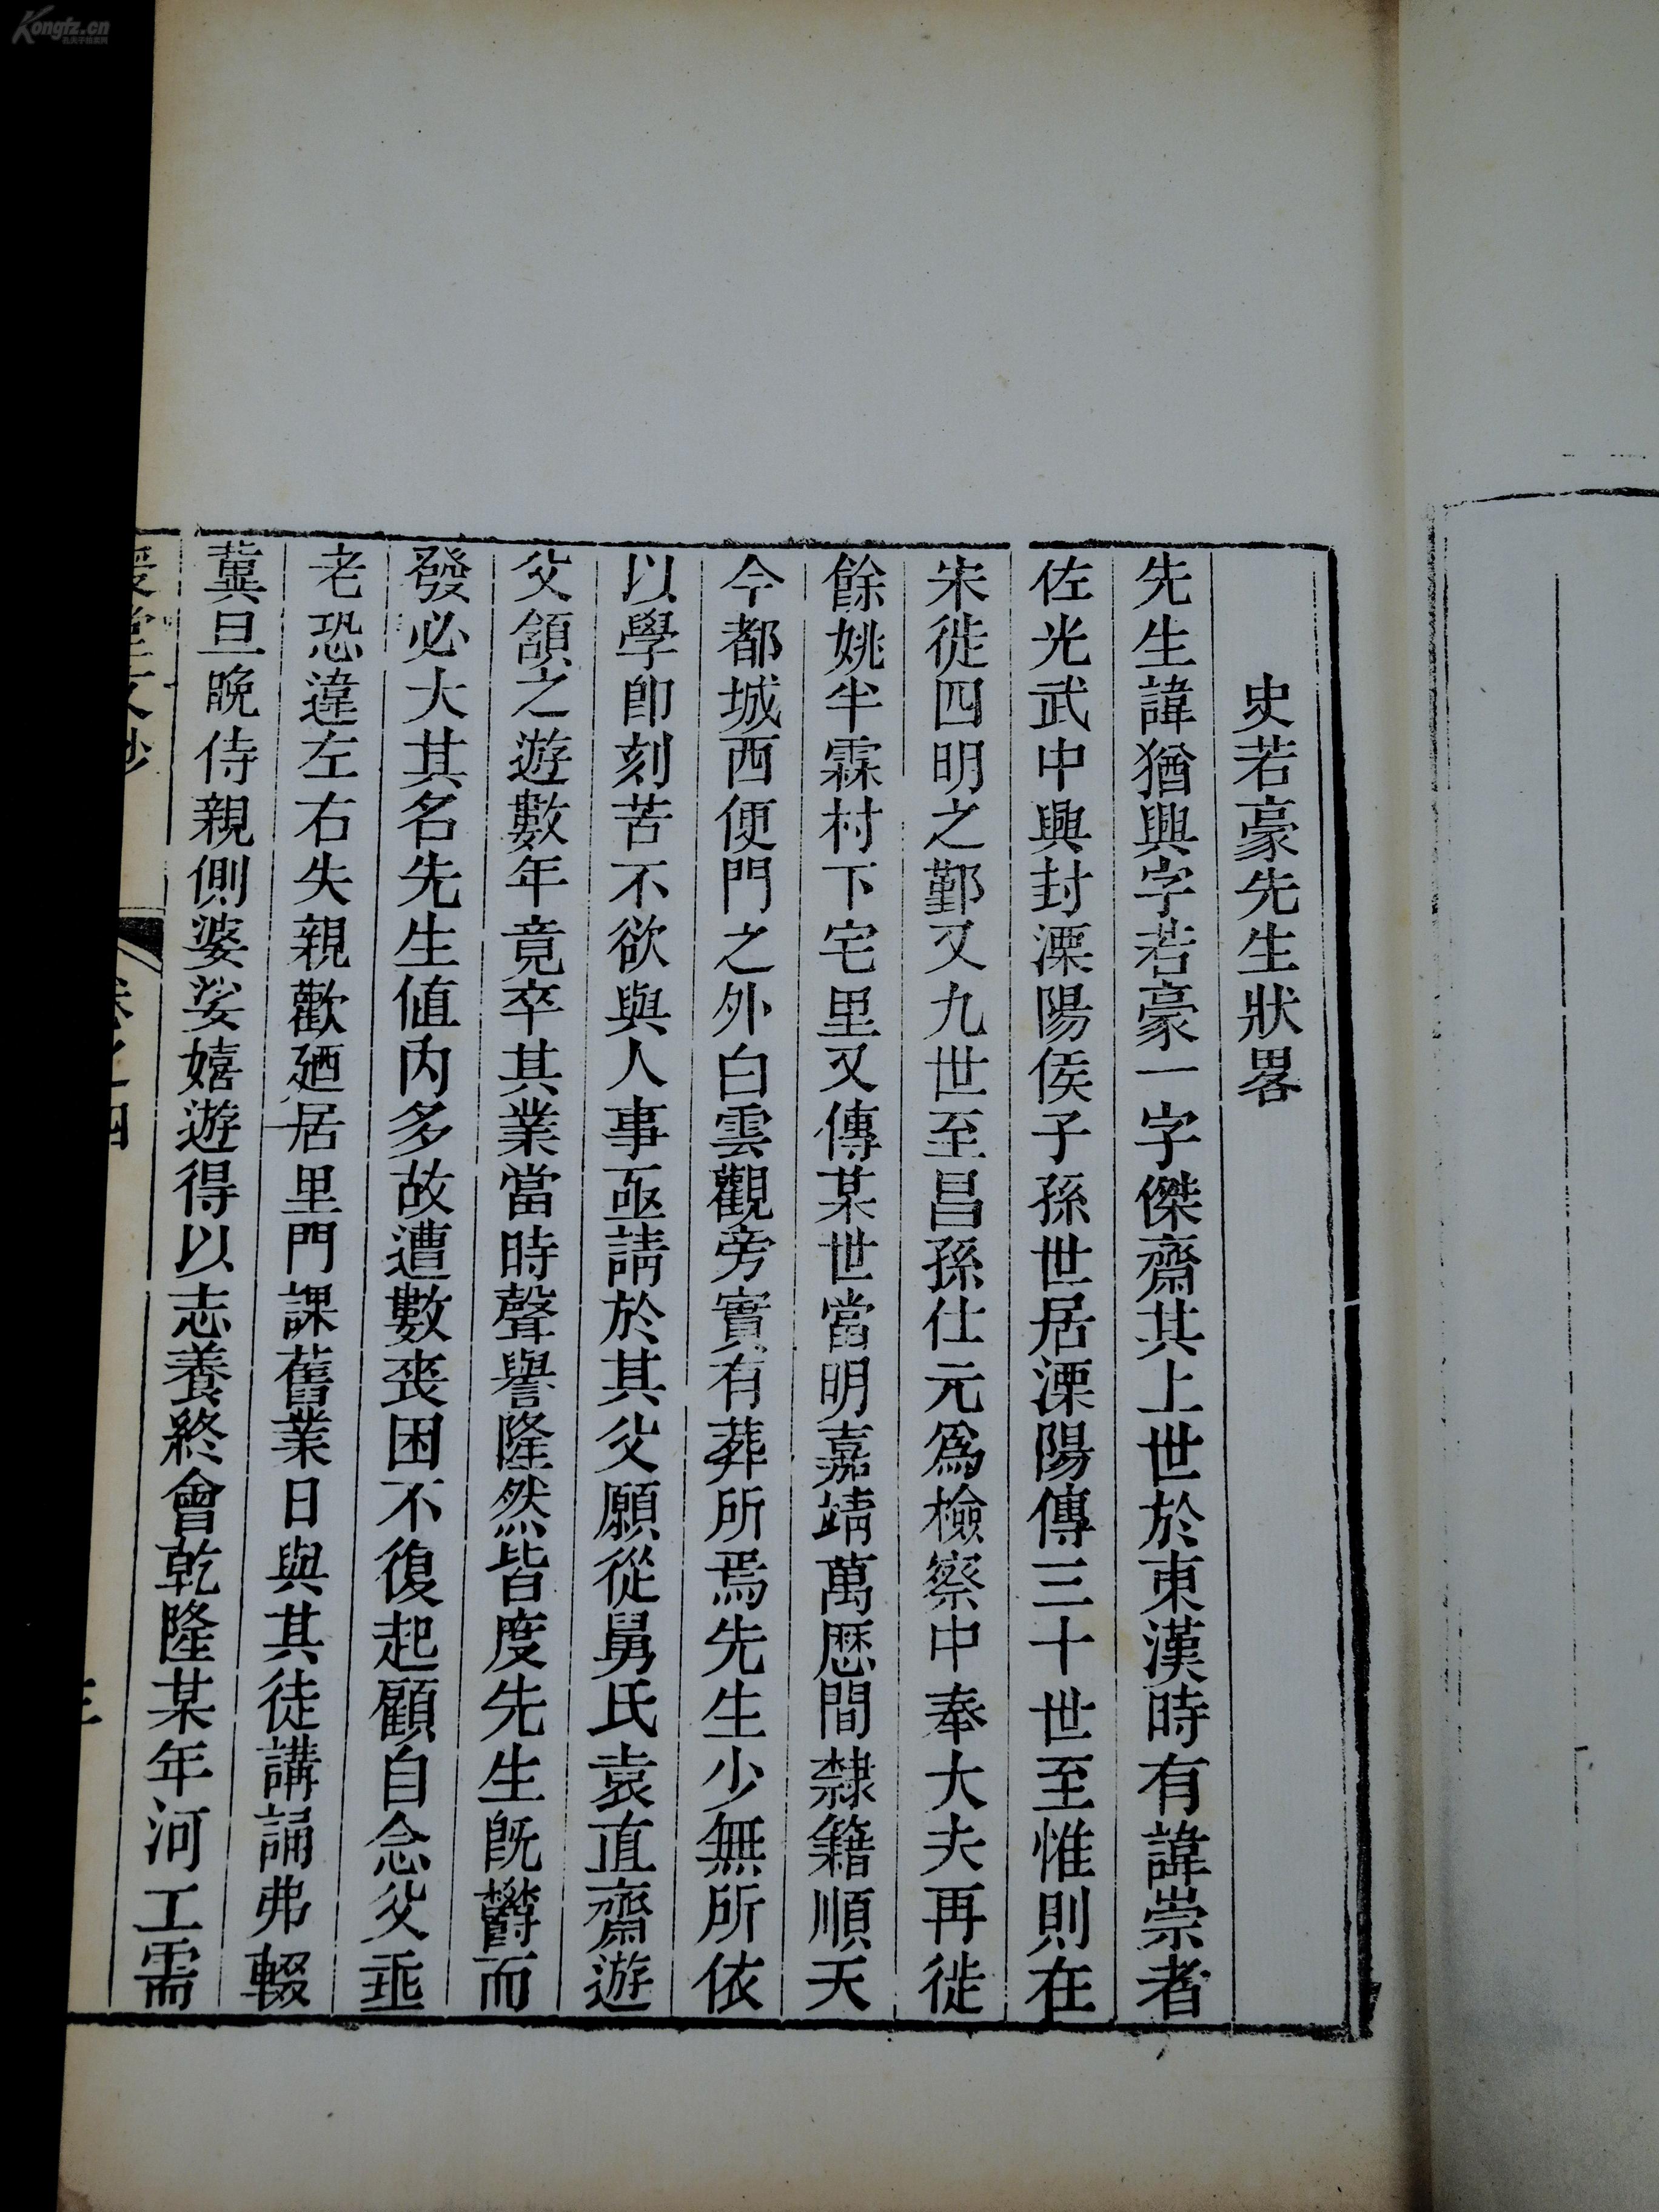 史若豪先生狀畧
先生諱猶興字若豪一字傑齋其上世於東漢時有諱崇者
佐光武中興封溧陽侯子孫世居溧陽傳三十世至惟則在
宋徙四明之鄞又九世至昌孫仕元爲檢察中奉大夫再徙
餘姚半霖村下宅里又傳某世當明嘉靖萬厯間隸籍順天
今都城西便門之外白雲觀旁實有葬所焉先生少無所依
以學卽刻苦不欲與人事亟請於其父願從舅氏袁直齋遊
父頷之遊數年竟卒其業當時聲譽隆然皆度先生旣欝而
發必大其名先生値內多故遭數喪困不復起顧自念父垂
老恐違左右失親歡廼居里門課舊業日與其徒講誦弗輟
冀旦晚侍親側婆娑嬉遊得以志養終會乾隆某年河工需
文鈔
卷之四
三
Kongfz.cn